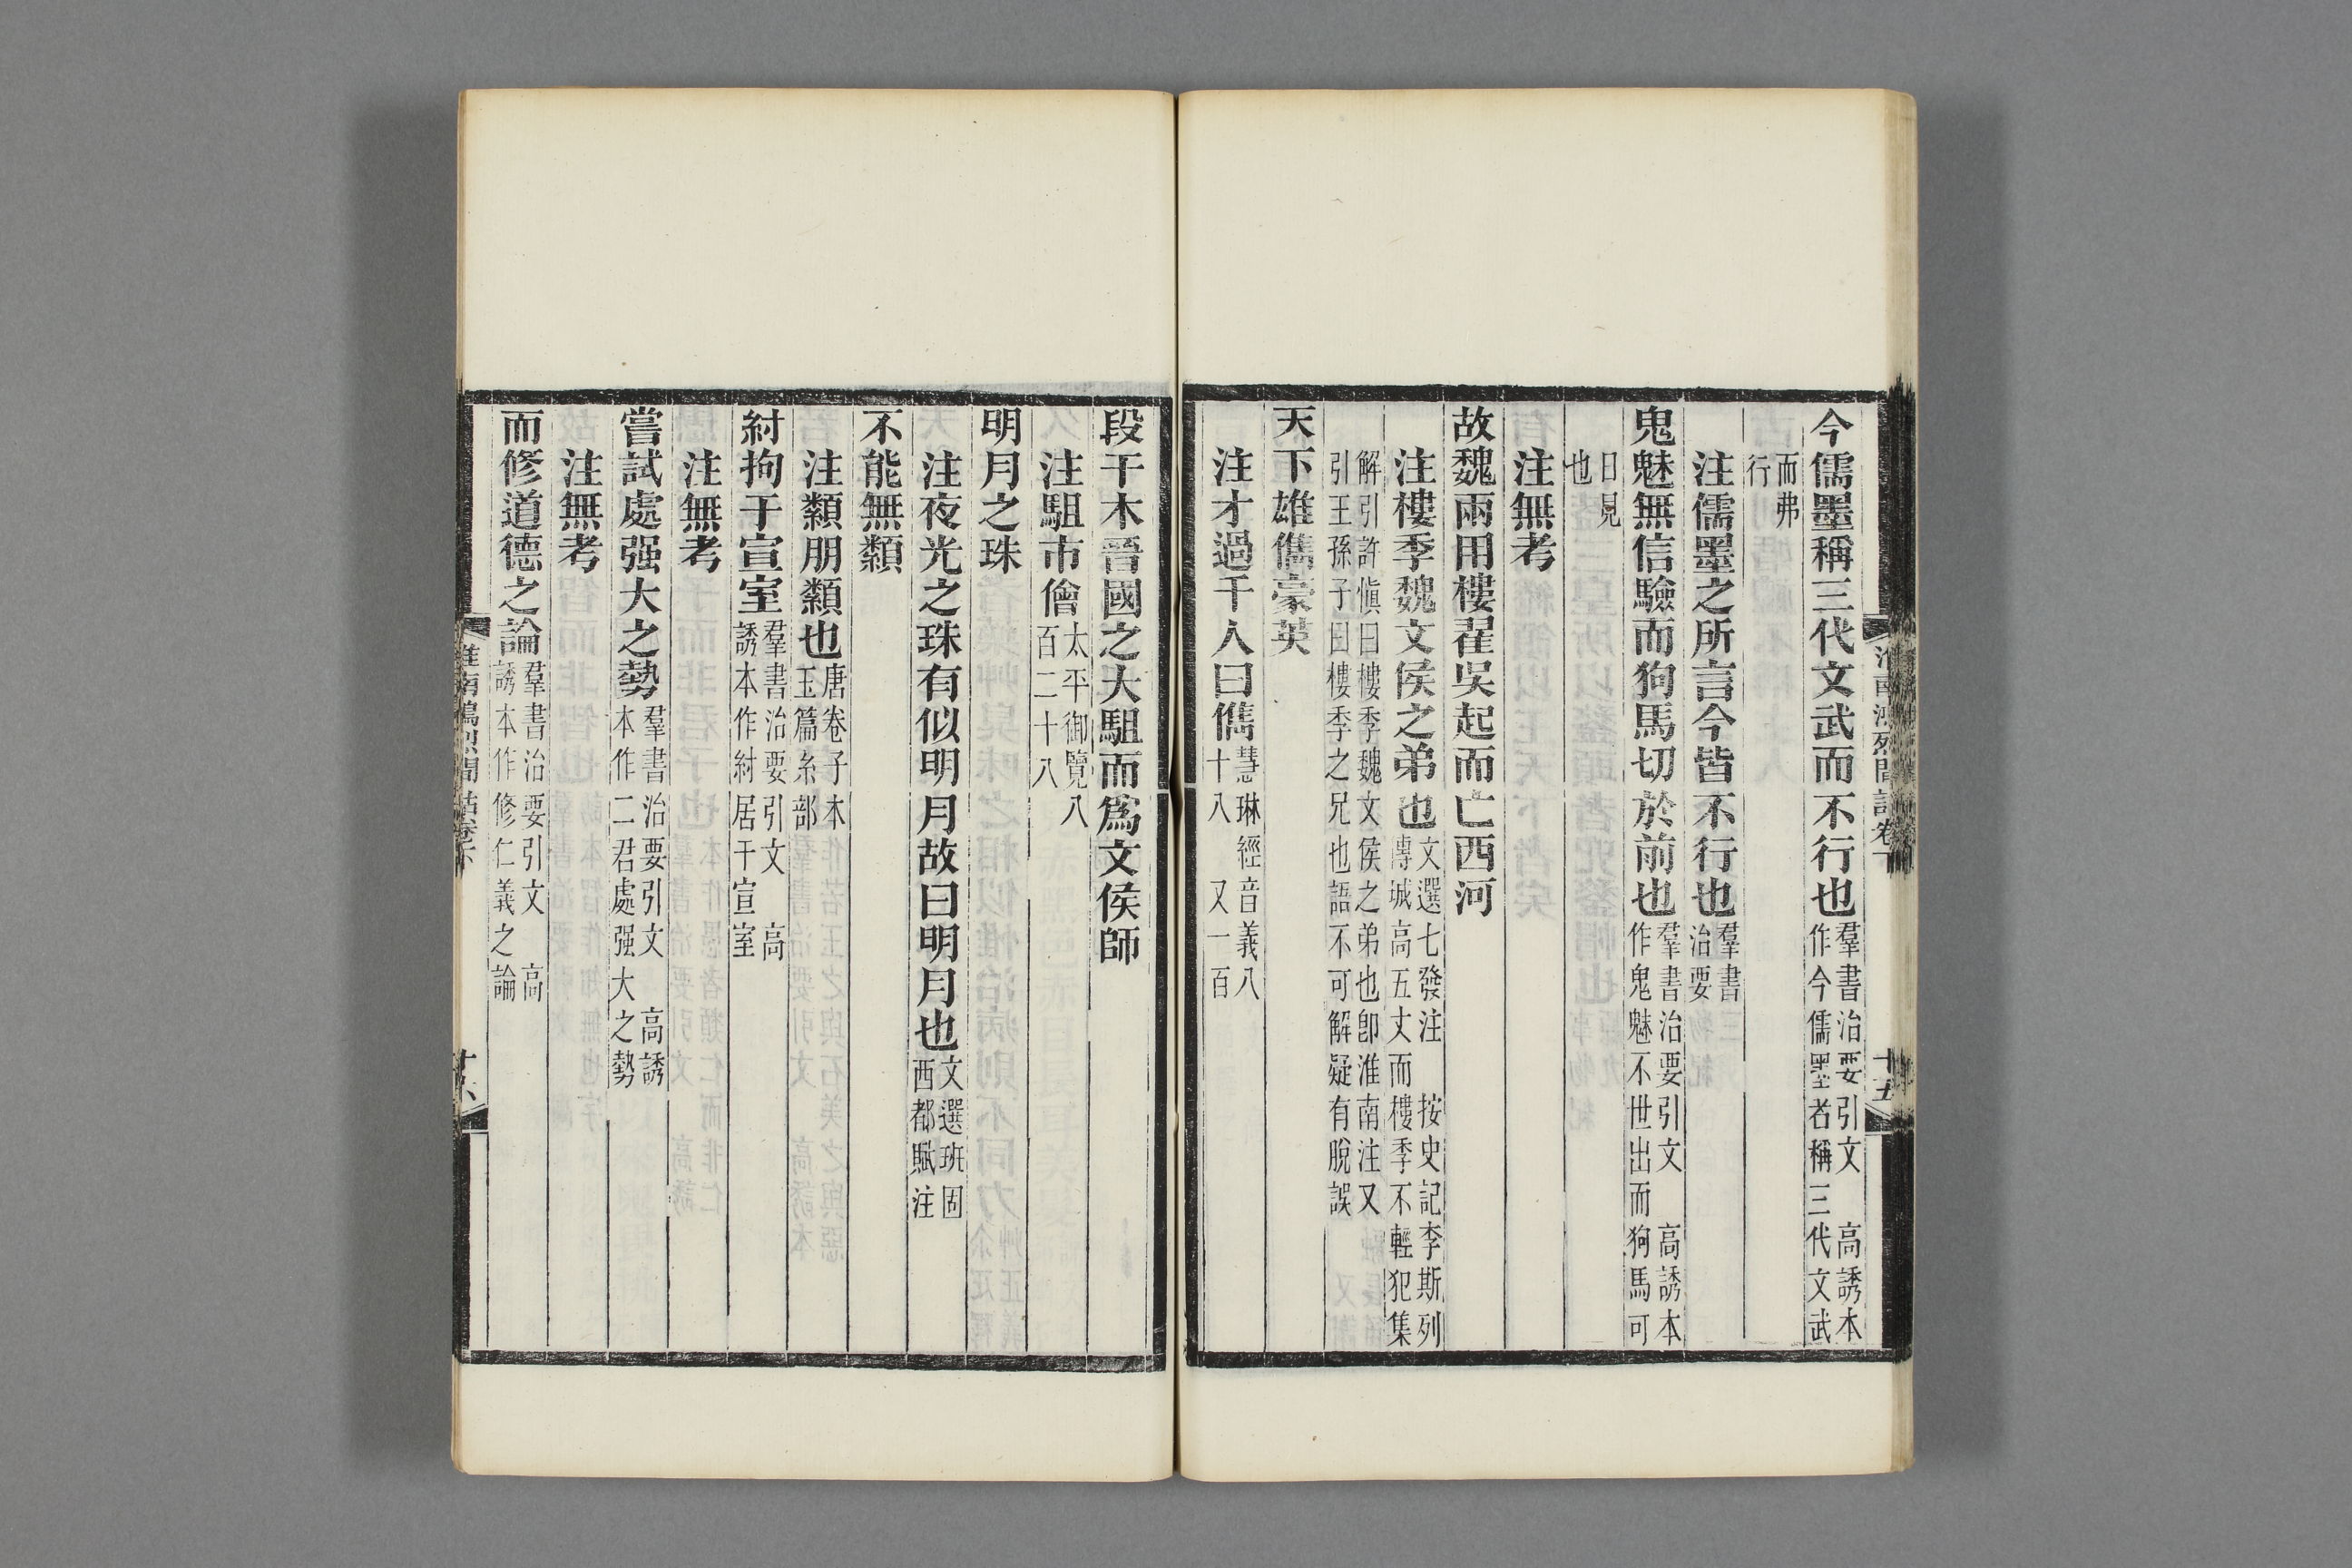 今儒墨稱三代文武而不行也羣書治要引文 高誘本作今儒墨者稱三代文武
而弗行
注儒墨之所言今皆不行也羣書治要
鬼魅無信驗而狗馬切於前也羣書治要引文 高誘本作鬼魅不世出而狗馬可
日見也
注無考
故魏兩用樓翟吳起而亡西河
注樓季魏文侯之弟也文選七發注 按史記李斯列傳城高五丈而樓季不輕犯集
解引許愼曰樓季魏文侯之弟也卽淮南注又引王孫子曰樓季之兄也語不可解疑有脫誤
天下雄儁豪英
注才過千人曰儁慧琳經音義八十八 又一百
淮南鴻烈閒詁卷下
十五
段干木晉國之大駔而爲文侯師
注駔市儈太平御覽八百二十八
明月之珠
注夜光之珠有似明月故曰明月也文選班固西都賦注
不能無纇
注纇朋纇也唐卷子本玉篇糸部
紂拘于宣室羣書治要引文 高誘本作紂居于宣室
注無考
嘗試處强大之勢羣書治要引文 高誘本作二君處强大之勢
注無考
而修道德之論羣書治要引文 高誘本作修仁義之論
淮南鴻烈閒詁卷下